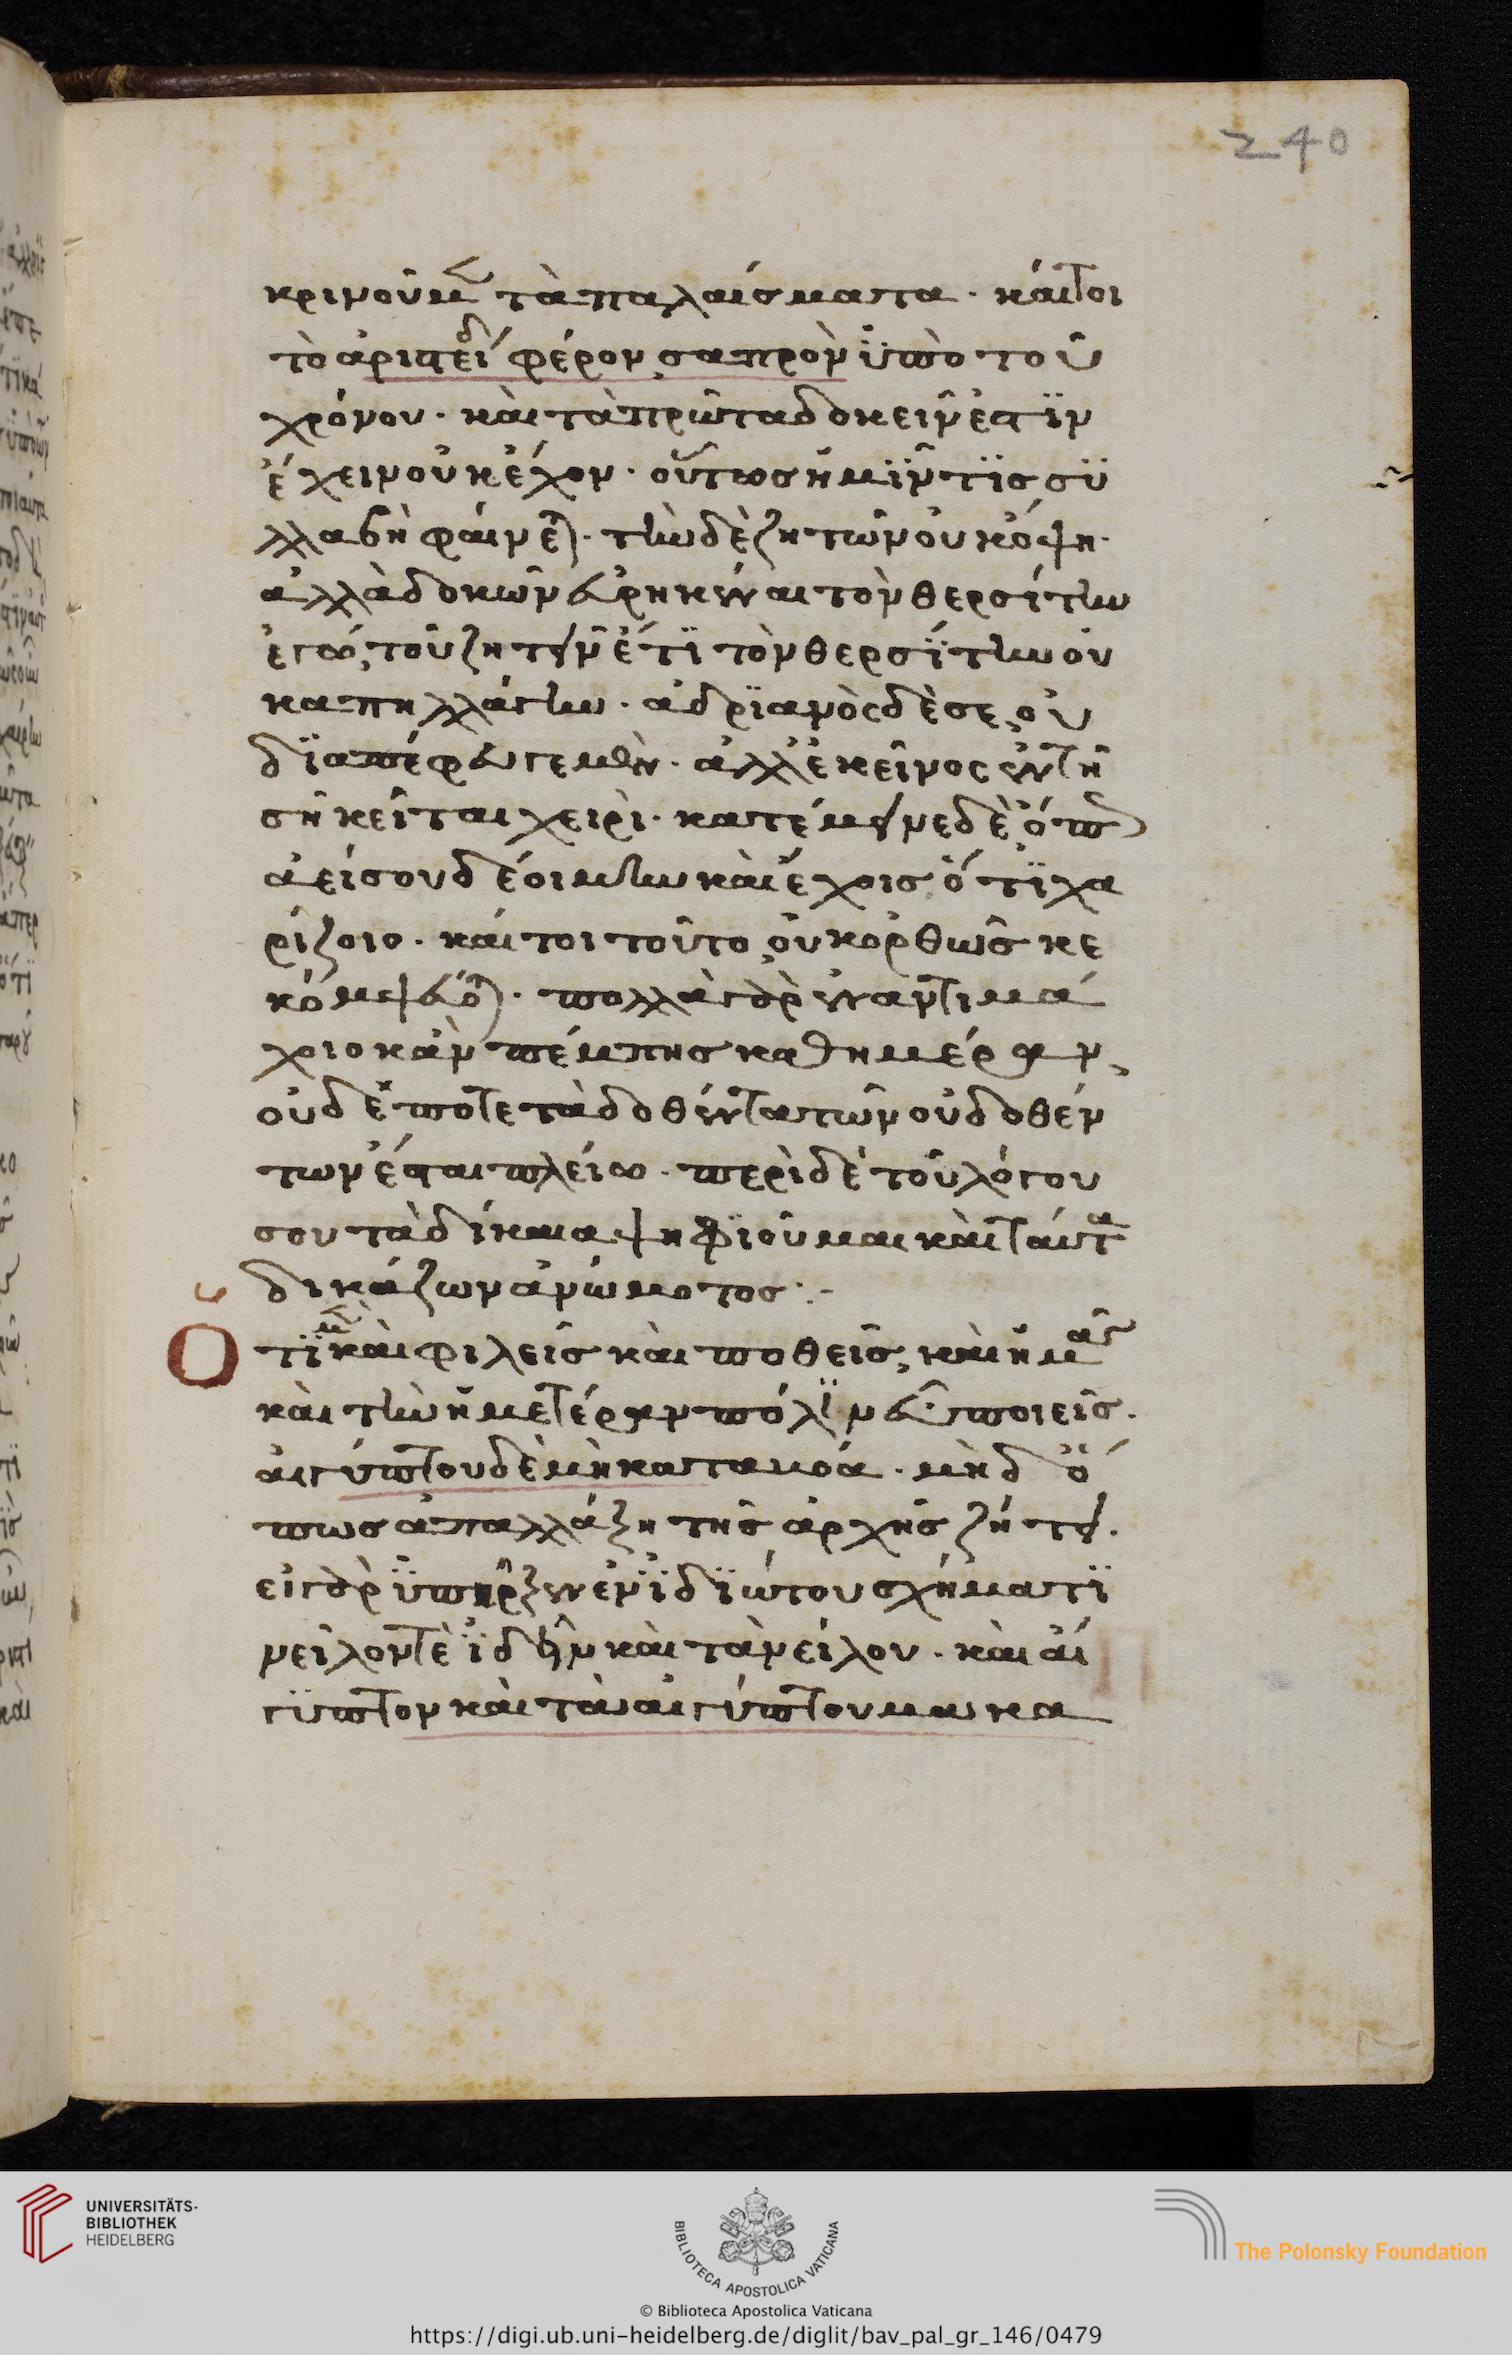 240
κρινοῦμεν τὰ παλαίσματα. καίτοι
τὸ ἀριστεῖ φέρον σαπρὸν ὑπὸ τοῦ
χρόνου. καὶ τὰ πρῶτα δοκεῖν ἐστϊν
ἔχειν οὐκ ἔχον. οὕτωσ ἡμῖν τϊσ συ
λλαβὴ φαίνεται. τὴν δὲ ζητῶν οὐκ ὄψη.
ἀλλὰ δοκῶν εὑρηκέναι τὸν θερσίτην
ἐγὼ, τοῦ ζητεῖν ἔτϊ τὸν θερσΐτην οὐ
κ ἀπηλλάγην. ἀδρϊανὸς δὲ σε, οὐ
δϊαπέφευγεμὲν. ἀλλ' ἐκεῖνος ἐν τῆ
σῆ κεῖται χειρὶ. κατέμεινε δὲ ὅπως
ἀεί σου δεοίμην καὶ ἔχοισ ὅτϊ χα
ρίζοιο. καίτοι τοῦτο, οὐκ ὀρθῶσ κε
κόμψευται. πολλὰ γὰρ ἐναντι μά
χοιο κἂν πέμπησ καθημέραν,
οὐδέποτε τὰ δοθέντα τῶν οὐ δοθέν
των ἔσται πλείω. περὶ δὲ τοῦ λόγου
σου τὰ δίκαια ψηφϊοῦμαι καὶ ταῦτα
δικάζων ἀνώμοτος:-
Ὅτϊ μὲν καὶ φιλεῖσ καὶ ποθεῖσ, καὶ ἡμᾶσ
καὶ τὴν ἡμετέραν πόλϊν εὖ ποιεῖσ.
αἰγύπτου δὲ μὴ καταμοά. μὴδ ὅ
πωσ ἀπαλλάξη τῆσ ἀρχῆσ ζήτει.
εἰ γὰρ ὑπῆρξεν ἐν ϊδϊώτου σχήματϊ
νεῖλον τὲ ϊδεῖν καὶ τὰ νείλου. καὶ αἴ
γϋπτον καὶ τὰ αἰγύπτου μωκα
UNIVERSITÄTS-
BIBLIOTHEK
HEIDELBERG
BIBLIOTECA APOSTOLICA VATICANA
The Polonsky Foundation
© Biblioteca Apostolica Vaticana
https://digi.ub.uni-heidelberg.de/diglit/bav_pal_gr_146/0479